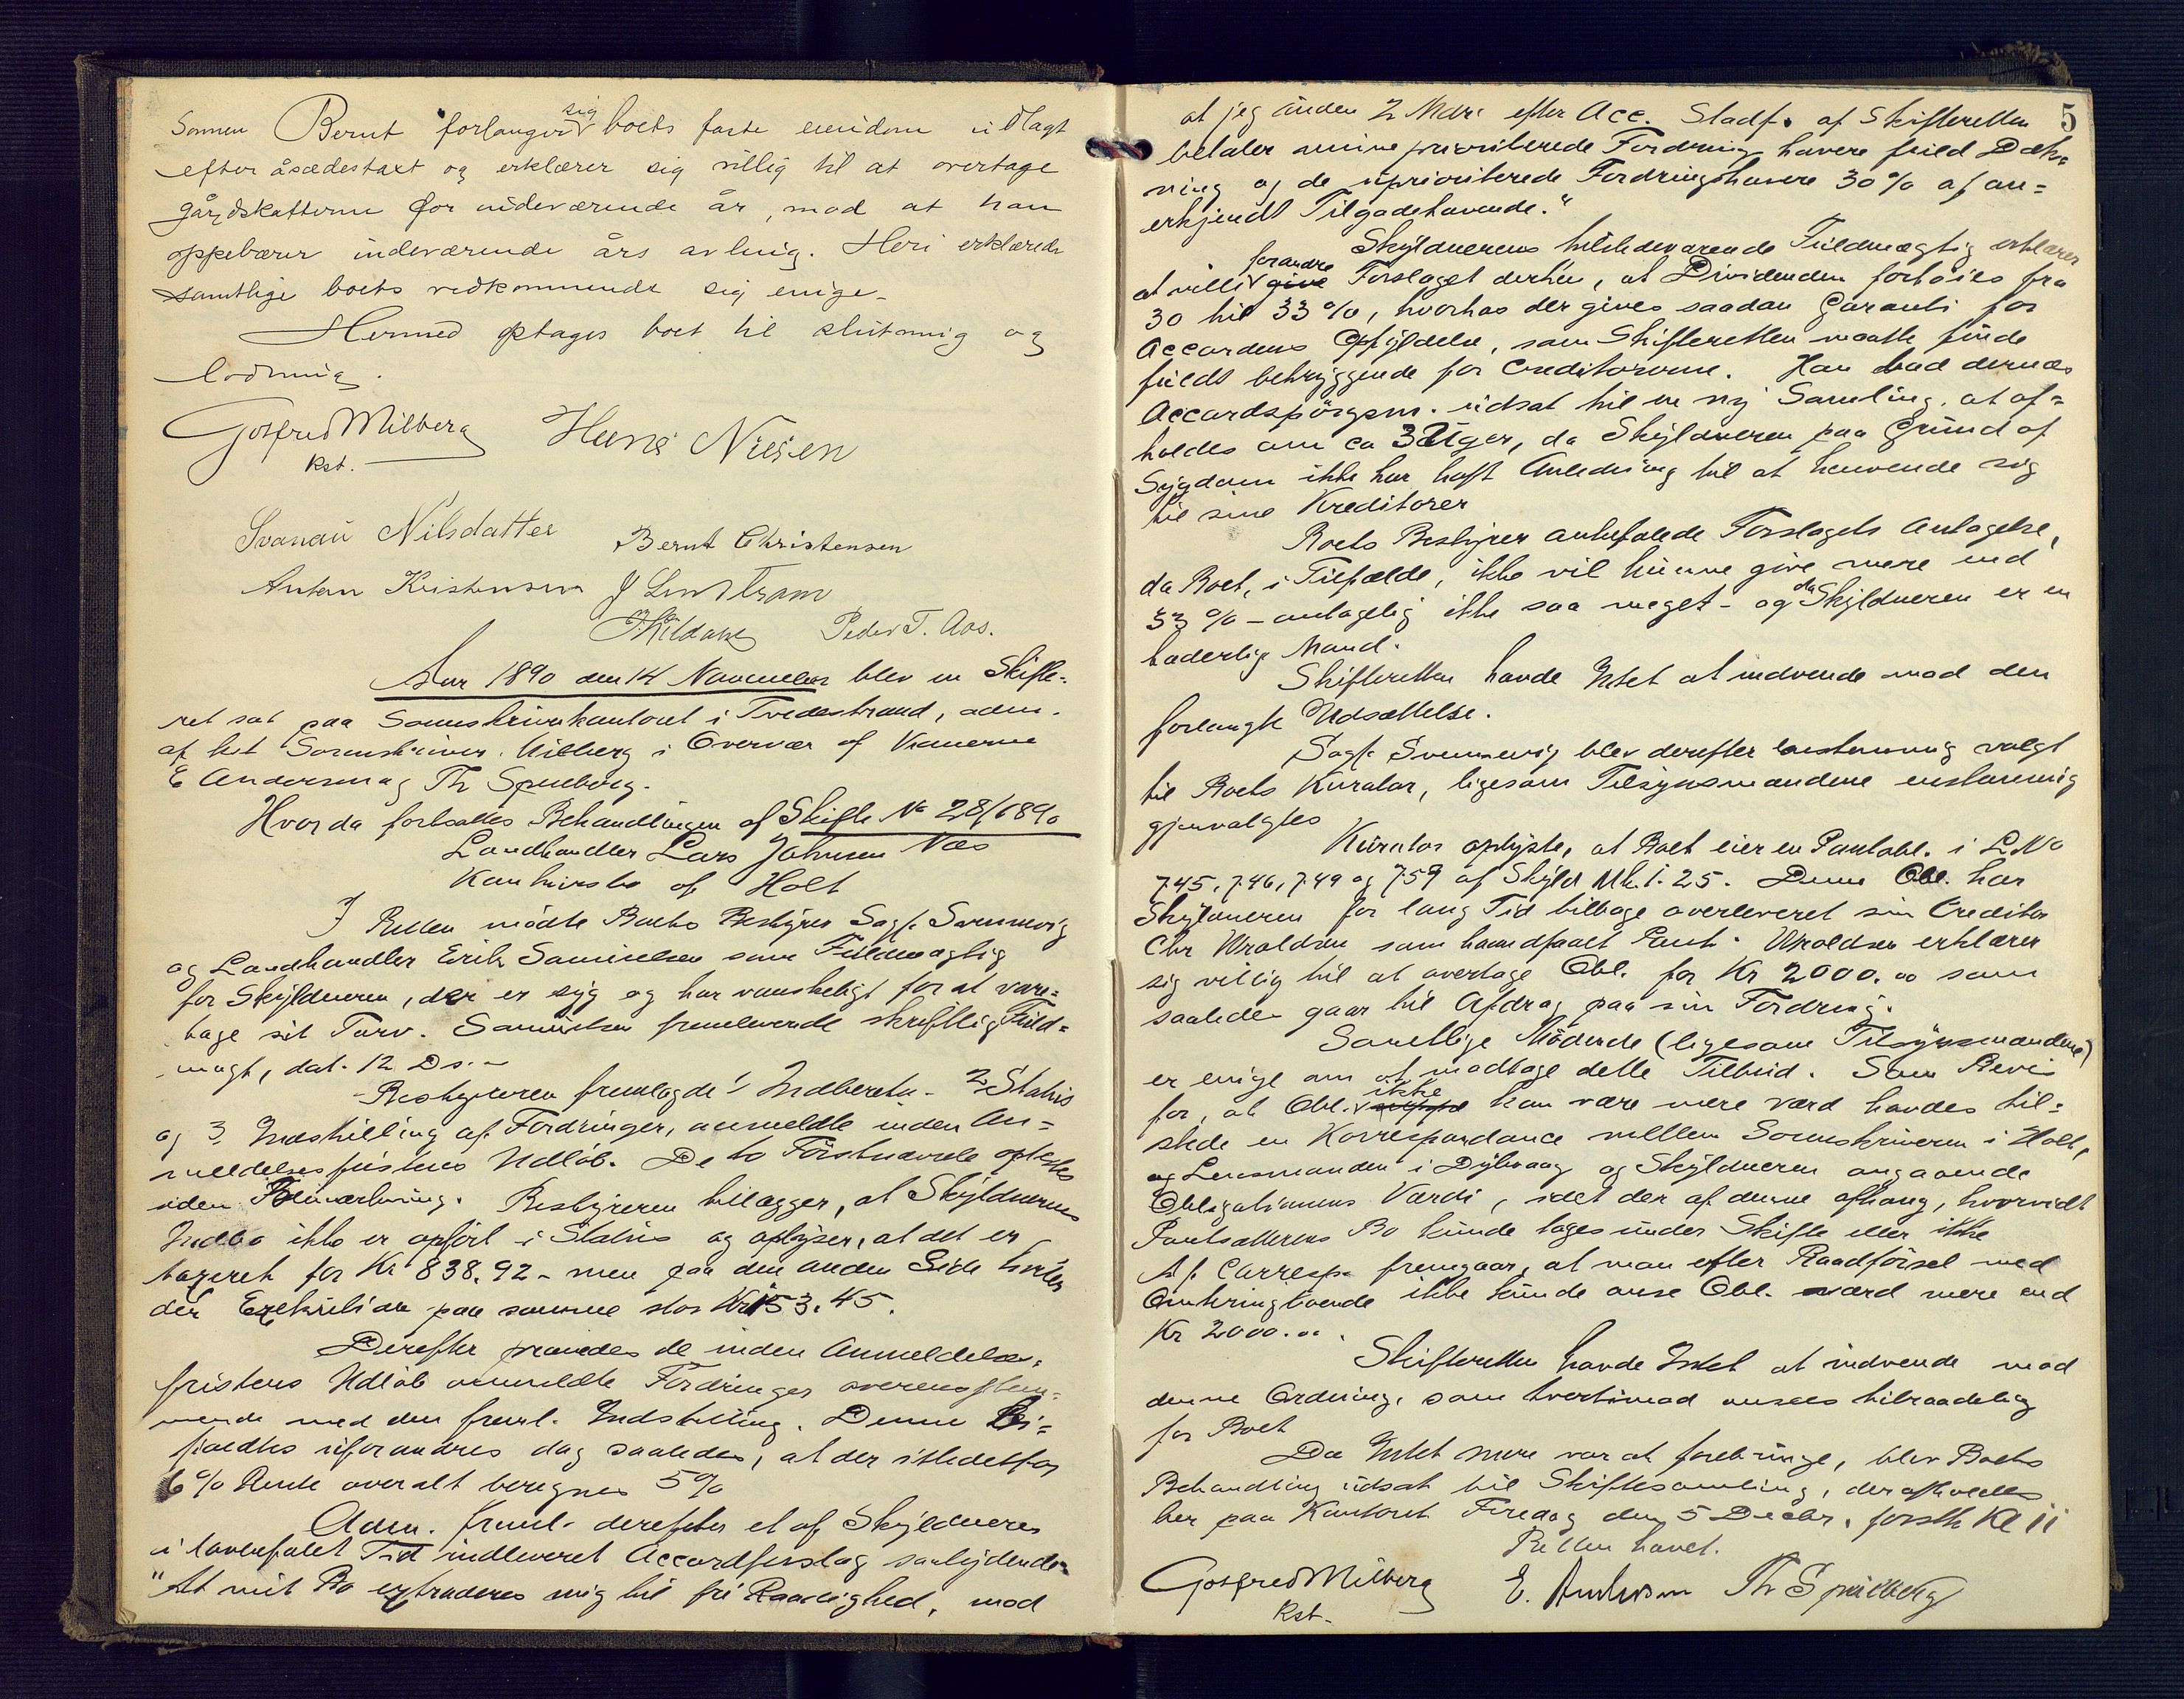 Sønnen Bernt forlanger sig boets faste eiendom udlagt
efter åsædestaxt og erklærer sig villig til at overtage
gårdskatterne for indeværende år, mod at han
oppebærer indeværende års avling. Heri erklærede
samtlige boets vedkommende sig enige.
Hermed optages boet til slutning og
lodning.
Gotfred Milberg Hans Nilsen
kst.
Svanau Nilsdatter Bernt Christensen
Anton Kristensen J Lindstrøm
Peder T. Aas.
Aar 1890 den 14 November blev en Skifte-
ret sat paa Sorenskriverkontoret i Tvedestrand, adm.
af kst Sorenskriver Milberg i Overvær af Vidnerne
E Anderson og Th Spredborg.
Hvorda fortsattes Behandlingen af Skifte No 28/1890
Landhandler Lars Johnsen Næs
Konkursbo af Holt
I Retten mødte Boets Bestyrer Sagf. Svennevig
og Landhandler Erik Samuelsen som Fuldmægtig
for Skyldneren, der er syg og har vanskeligt for at vare-
tage sit Tarv. Samuelsen fremleverede skriftlig Fuld-
magt, dat. 12 Ds.-
Bestyreren fremlagde 1 Indberetn. 2 Status
og 3. Indstilling af Fordringer, anmeldte inden An-
meldelsesfristens Udløb. De to Førstnævnte oplæstes
uden Bemærkning. Bestyreren tillægger, at Skyldnerens
Indbo ikke er opført i Status og oplyser, at det er
taxeret for Kr 838.92 - men paa den anden Side hviler
der Exekution paa samme stor Kr 153.45.
Derefter prøvedes de inden Anmeldelses-
fristens Udløb anmeldte Fordringer overensstem-
mende med den freml. Indstilling. Denne Bi-
faldtes uforandret dog saaledes, at der istedetfor
6 % Rente overalt beregnes 5 %
Adm. freml. derefter et af Skyldneren
i lovbefalet Tid indleveret Accordforslag saalydende:
"At mit Bo extraderes mig til fri Raadighed, mod
5
at jeg inden 2 Mdr. efter Acc. Stadf. af Skifteretten
betaler mine prioriterede Fordringshavere fuld Dæk-
ning og de uprioriterede Fordringshavere 30 % af an-
erkjendt Tilgodehavende."
Skyldnerens tilstedeværende Fuldmægtig erklærer
at ville forandre give Forslaget derhen, at Dividenden forhøies fra
30 til 33 %, hvorhos der gives saadan Garanti for
Accordens Opfyldelse, som Skifteretten maatte finde
fuldt betryggende for Creditorerne. Han bad dernæs
Accordspørgsm. udsat til en ny Samling, at af-
holdes om ca 3 Uger, da Skyldneren paa Grund af
Sygdom ikke har haft Anledning til at henvende sig
til sine Kreditorer
Boets Bestyrer anbefalede Forslagets Antagelse,
da Boet, i Tilfælde, ikke vil kunne give mere end
33 % - antagelig ikke saa meget - og da Skyldneren er en
hæderlig Mand.
Skifteretten havde Intet at indvende mod den
forlangte Udsættelse.
Sagf. Svennevig blev derefter enstemmig valgt
til Boets Kurator, ligesom Tilsynsmændene enstemmig
gjenvalgtes
Kurator oplyste, at Boet eier en Pantobl. i L.No
745, 746, 749 og 759 af Skyld Mk. 1.25. Denne Obl. har
Skyldneren for lang Tid tilbage overleveret sin Creditor
Chr Uraldsen som haandfaaet Pant. Uraldsen erklærer
sig villig til at overtage Obl. for Kr 2000.00 som
saaledes gaar til Afdrag paa sin Fordring.
Samtlige Mødende (ligesom Tilsynsmændene)
er enige om at modtage dette Tilbud. Som Bevis
for, at Obl. ikke kan være mere værd havdes til-
stede en Korrespondance mellem Sorenskriveren i Holt,
og Lensmanden i Dybvaag og Skyldneren angaaende
Obligationens Værdi, idet der af denne afhang, hvorvidt
Pantsætterens Bo kunde tages under Skifte eller ikke
Af Corresp. fremgaar, at man efter Raadførsel med
Omkringboende ikke kunde anse Obl. værd mere end
Kr 2000.00.
Skifteretten havde Intet at indvende mod
denne Ordning, som tvertimod ansees tilraadelig
for Boet
Da Intet mere var at frembringe, blev Boets
Behandling udsat til Skiftesamling, der afholdes
her paa Kontoret Fredag den 5 Decbr. førstk Kl 11
Retten hævet.
Gotfred Milberg E. Anderson Th Spredborg
kst.